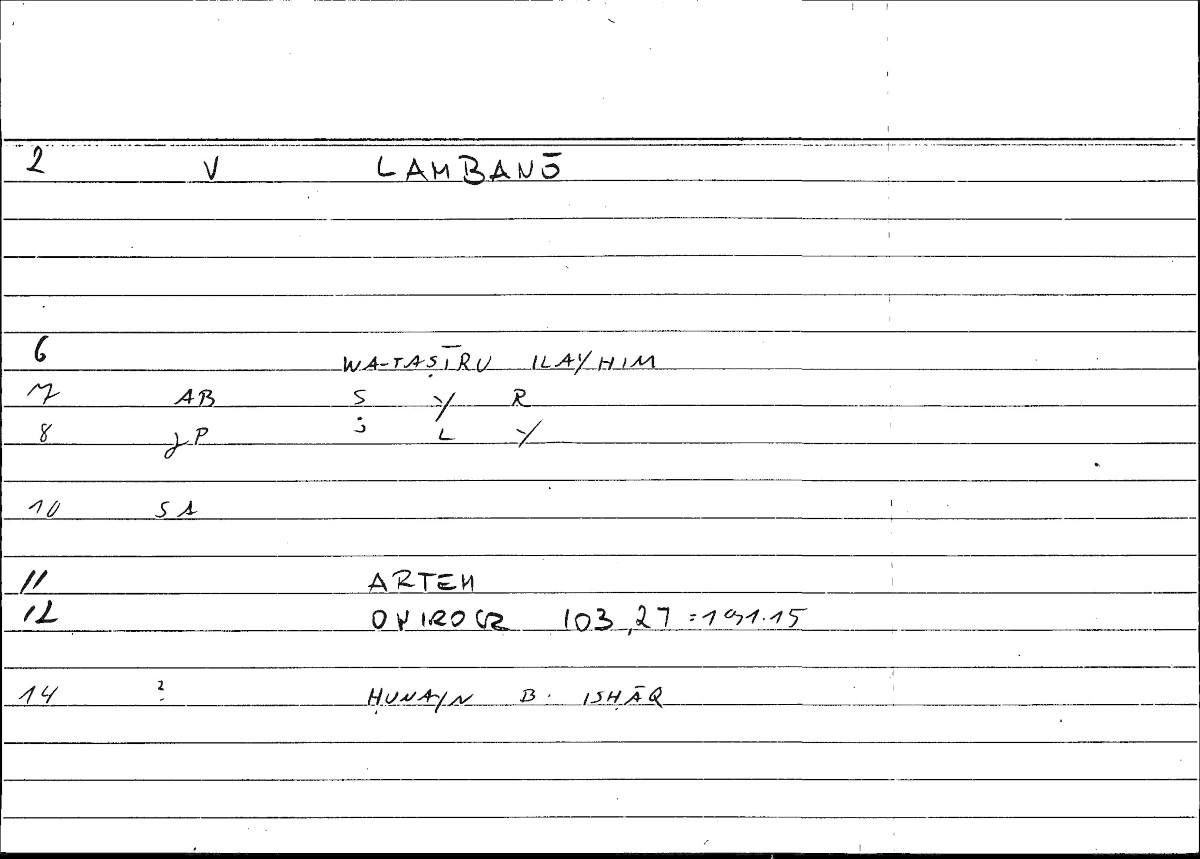 2 V LAMBANŌ
6 WA-TAṢĪRU ILAYHIM
7 AB S Y R
8 JP L Y
10 SA
11 ARTEM
12 ONIROCR 103,27 = 191.15
14 ? ḤUNAYN B. ISḤĀQ